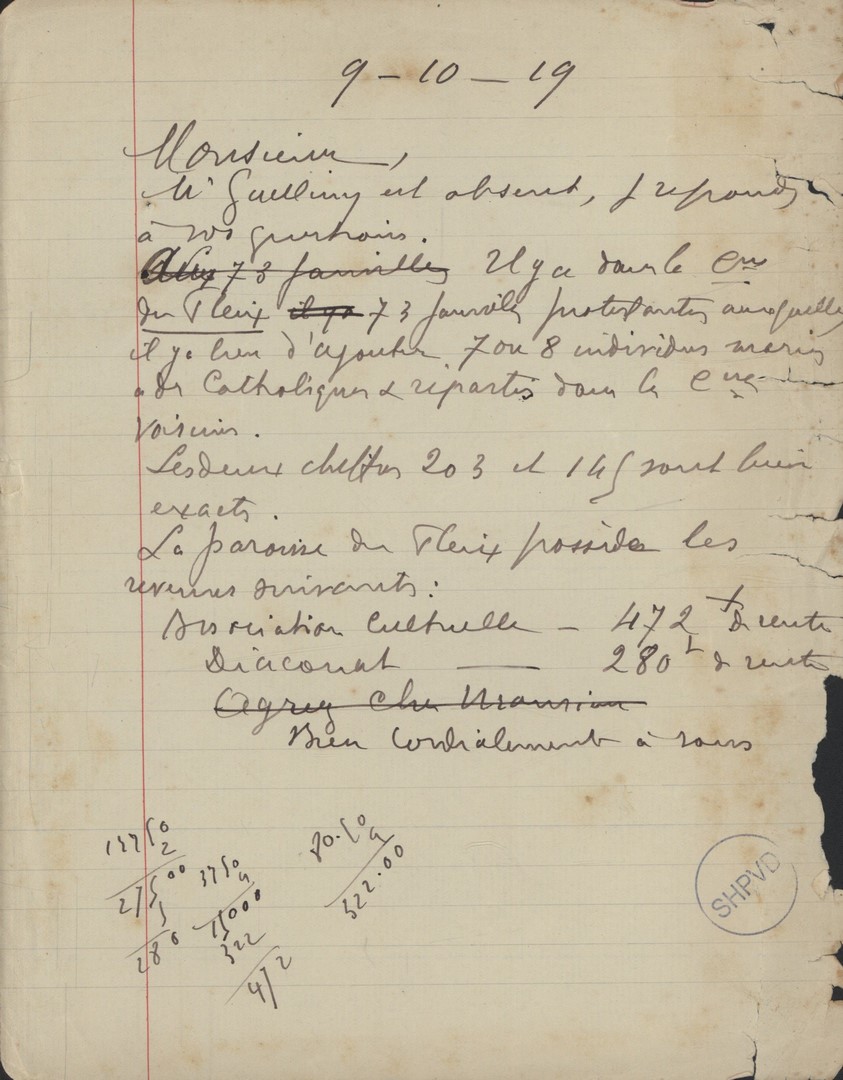 9 - 10 - 19
Monsieur,
Mr est absent, je réponds
à vos questions.
73 familles Il y a dans la Cne
du Fleix il y a 73 familles protestantes auxquelles
il y a lieu d'ajouter 7 ou 8 individus mariés
à des Catholiques & répartis dans les Cnes
voisines.
Les deux chiffres 203 et 145 sont bien
exacts.
La paroisse du Fleix possède les
revenus suivants :
Association Cultuelle - 472 f de rente
Diaconat — 280 f de rente
Agréez cher Monsieur
Bien cordialement à vous
137 50
2
275 00
5
280
37 50
4
150 00
322
472
80.50
4
322.00
SHPVD